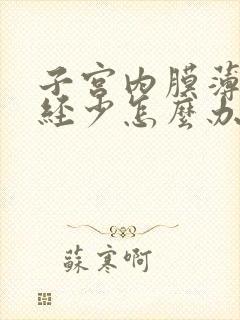 子宮内膜薄
經少怎麼办
蘇寒啊